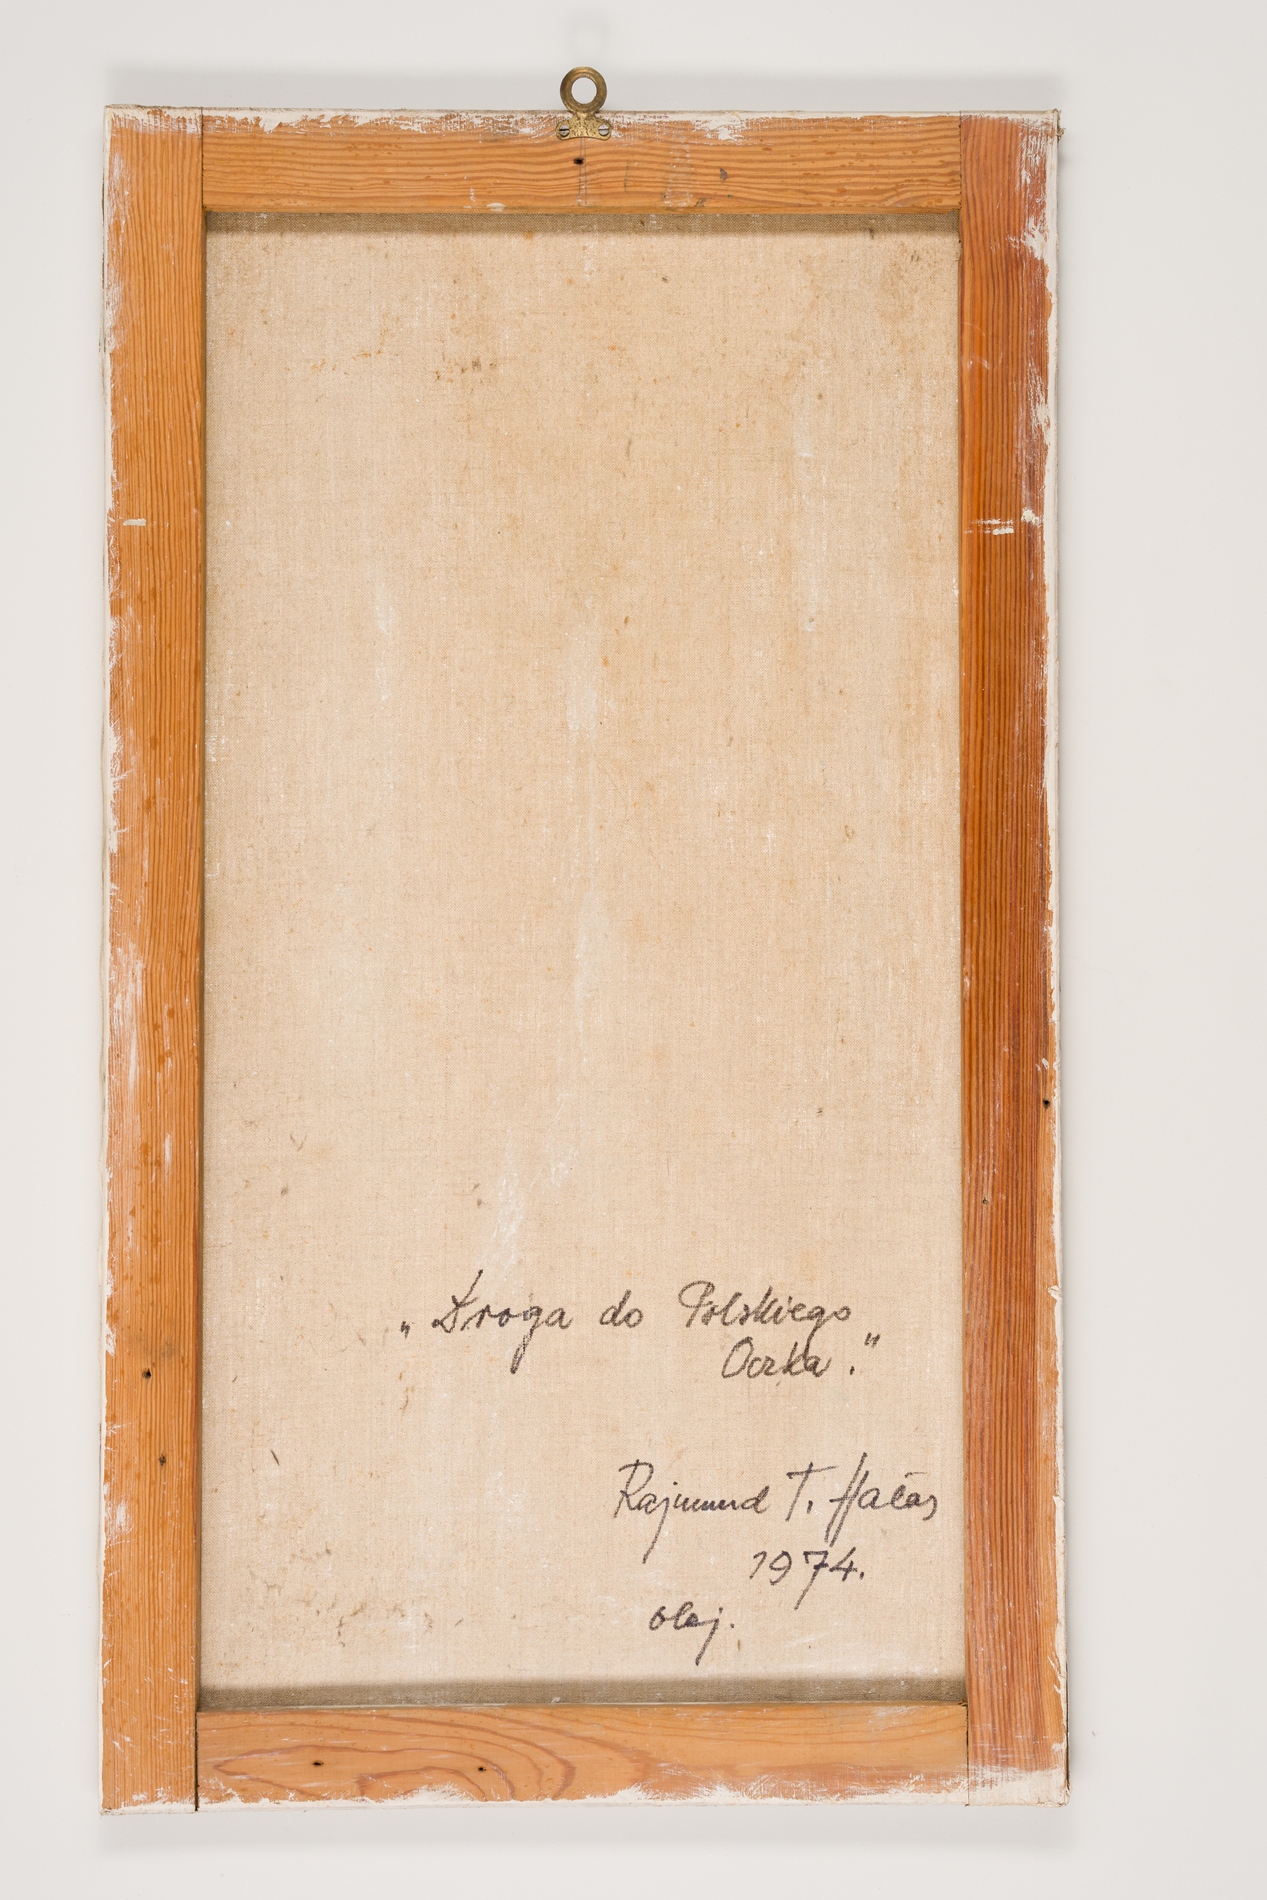 „Droga do Polskiego
Oczka."
Rajmund T. Hałas
1974.
olej.